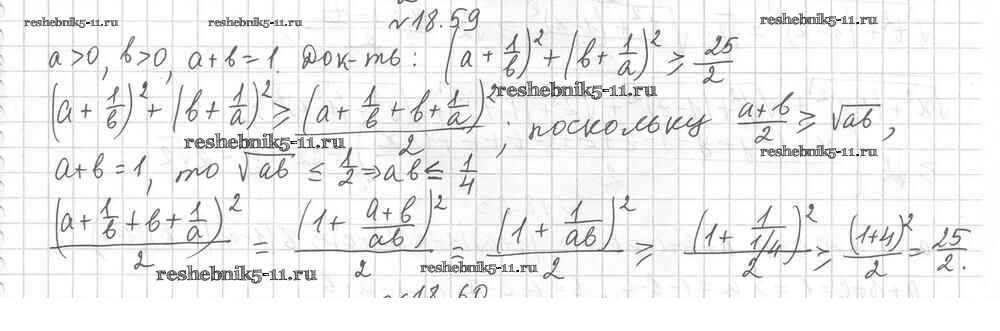 reshebnik5-11.ru reshebnik5-11.ru №18.59 reshebnik5-11.ru
a>0, b>0, a+b=1. Док-ть: (a + 1/b)^2 + (b + 1/a)^2 ≥ 25/2
(a + 1/b)^2 + (b + 1/a)^2 ≥ (a + 1/b + b + 1/a)^2 / 2 ; поскольку (a+b)/2 ≥ √ab,
reshebnik5-11.ru
reshebnik5-11.ru reshebnik5-11.ru
a+b=1, то √ab ≤ 1/2 ⇒ ab ≤ 1/4
(a + 1/b + b + 1/a)^2 / 2 = (1 + (a+b)/ab)^2 / 2 = (1 + 1/ab)^2 / 2 ≥ (1 + 1/(1/4))^2 / 2 ≥ (1+4)^2 / 2 = 25/2.
reshebnik5-11.ru reshebnik5-11.ru reshebnik5-11.ru